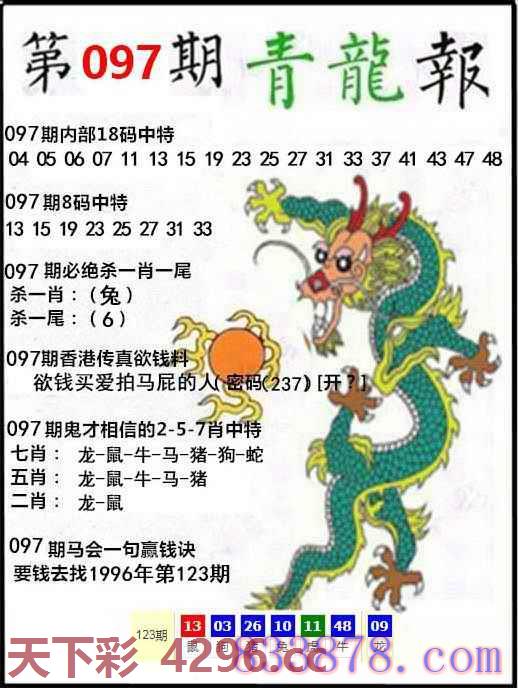 第097期青龍報
097期内部18码中特
04 05 06 07 11 13 15 19 23 25 27 31 33 37 41 43 47 48
097期8码中特
13 15 19 23 25 27 31 33
097期必绝杀一肖一尾
杀一肖：（兔）
杀一尾：（6）
097期香港传真欲钱料
欲钱买爱拍马屁的人(密码(237)[开?]
097期鬼才相信的2-5-7肖中特
七肖： 龙-鼠-牛-马-猪-狗-蛇
五肖： 龙-鼠-牛-马-猪
二肖： 龙-鼠
097期马会一句赢钱诀
要钱去找1996年第123期
123期 13 03 26 10 11 48 09
鼠 狗 猪 兔 虎 牛 龙
天下彩 4296.cc
833878.com